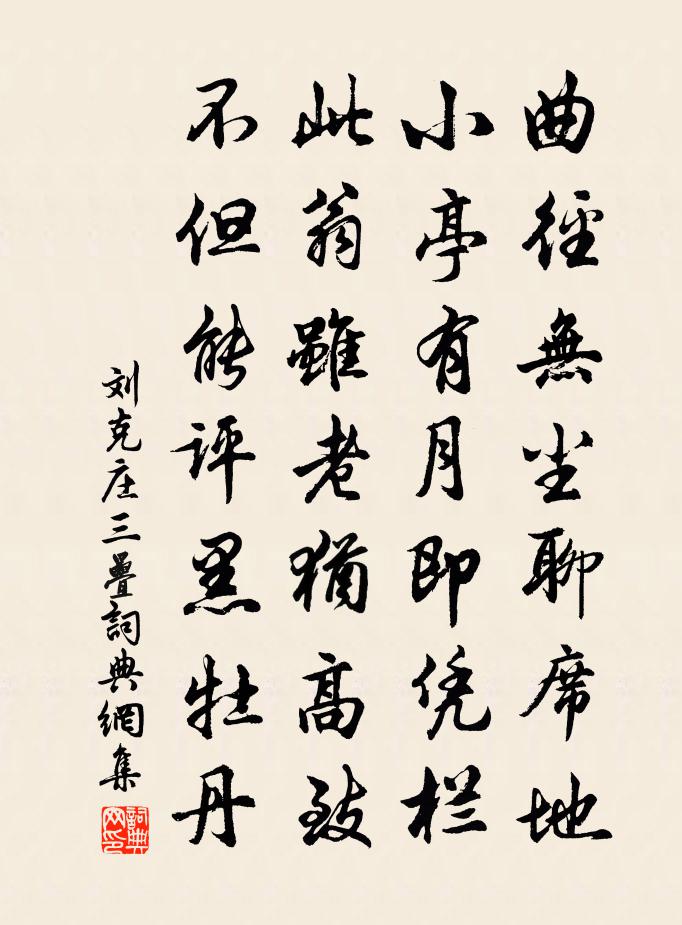 曲径無尘聊席地
小亭有月即凭栏
此翁雖老猶高致
不但能评黑牡丹
刘克庄三疊詞典網集
詞典
网印